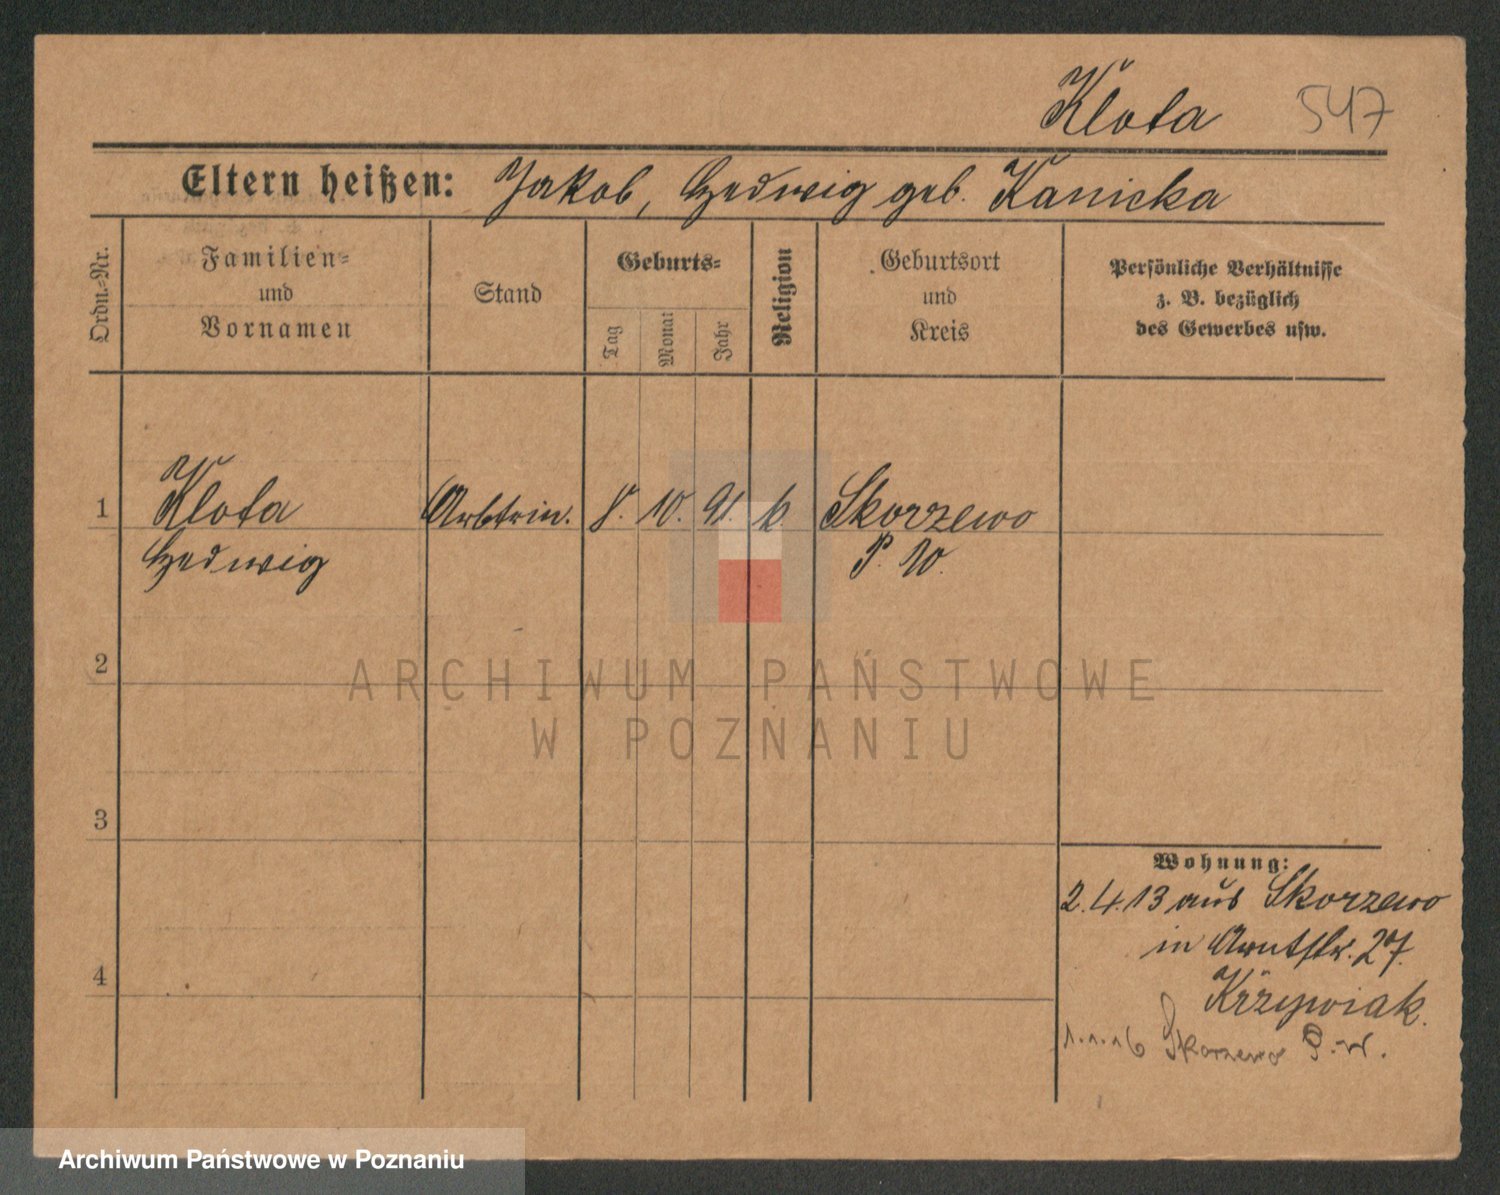 Klota 547
Eltern heißen: Jakob, Hedwig geb. Kanicka
Ordn.-Nr.
Familien-
und
Vornamen
Stand
Geburts-
Tag
Monat
Jahr
Religion
Geburtsort
und
Kreis
Persönliche Verhältnisse
z. B. bezüglich
des Gewerbes usw.
1 Klota Arbtrin. 8. 10. 91. k. Skorzewo
Hedwig P. W.
2
3
4
Wohnung:
2.4.13 aus Skorzewo
in Arntstr. 27.
Krzywiak.
1.1.16 Skorzewo P.W.
ARCHIWUM PAŃSTWOWE
W POZNANIU
Archiwum Państwowe w Poznaniu